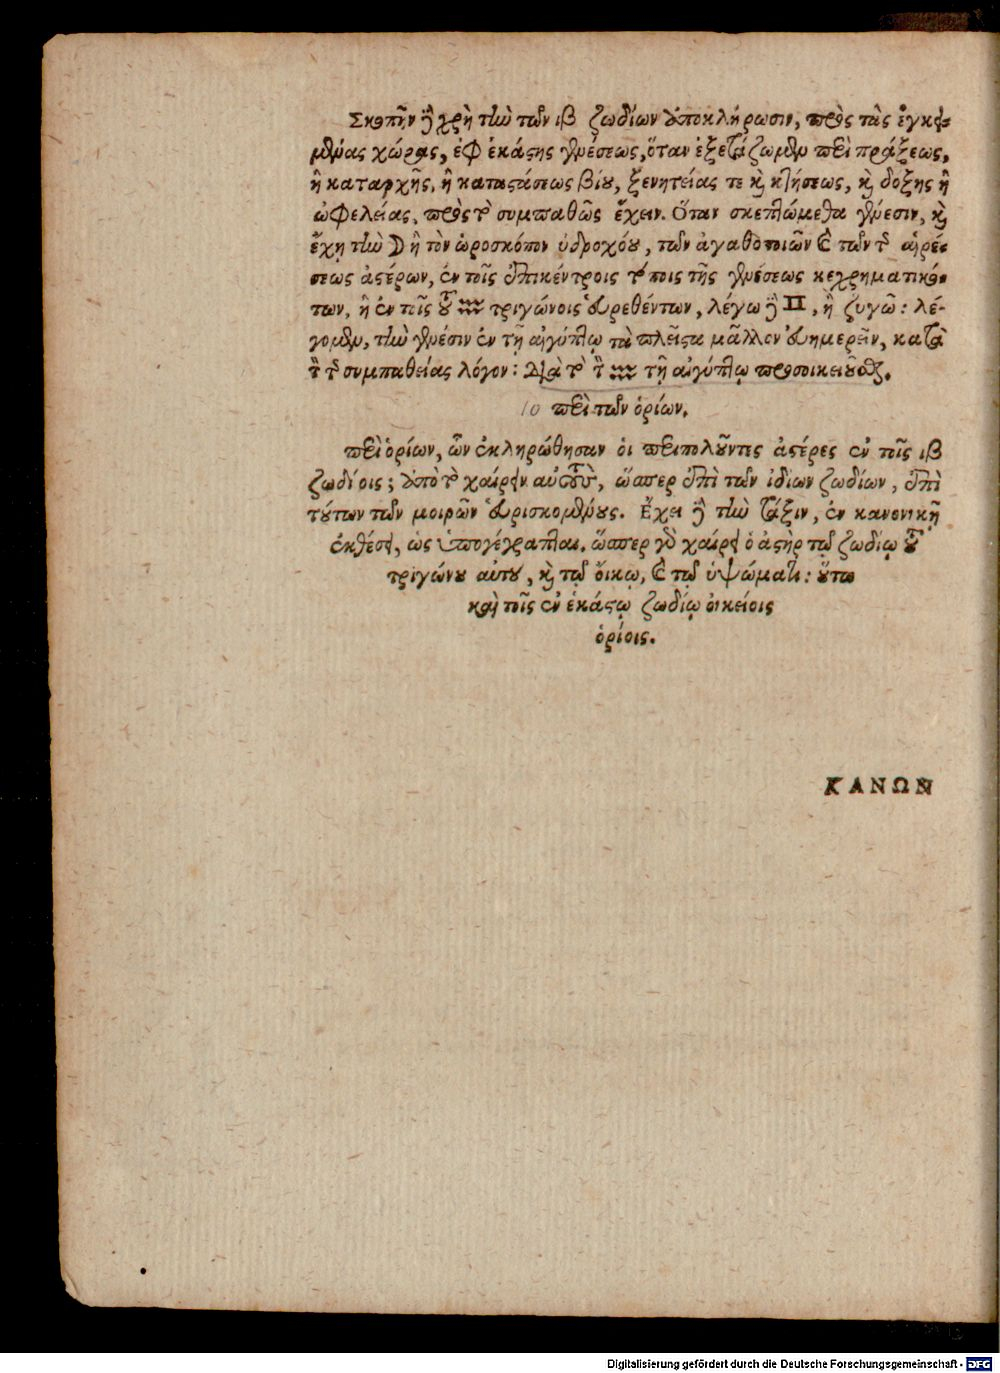 Σκοπεῖν δὲ χρὴ τὴν τῶν ιβ ζωδίων ἀποκλήρωσιν, πρὸς τὰς ἐγκει-
μένας χώρας, ἐφ ἑκάστης γενέσεως, ὅταν ἐξετάζωμεν περὶ πράξεως,
ἢ καταρχῆς, ἢ καταστάσεως βίου, ξενητείας τε καὶ κτήσεως, καὶ δοξης ἢ
ὠφελείας, πρὸς τὸ συμπαθῶς ἔχειν. Ὅταν σκεπτώμεθα γένεσιν, καὶ
ἔχῃ τὴν ☽ ἢ τὸν ὡροσκόπον ὑδροχόου, τῶν ἀγαθοποιῶν καὶ τῶν τῆς αἱρέ-
σεως ἀστέρων, ἐν τοῖς ἐπικέντροις τόποις τῆς γενέσεως κεχρηματικό-
των, ἢ ἐν τοῖς τοῦ ♒ τριγώνοις εὑρεθέντων, λέγω δὲ ♊, ἢ ζυγῶ: λέ-
γομεν, τὴν γένεσιν ἐν τῇ αἰγύπτῳ τὰ πλεῖστα μᾶλλον εὐημερεῖν, κατὰ
τὸν τῆς συμπαθείας λόγον: Διὰ τὸ τὸν ♒ τῇ αἰγύπτῳ προσοικειοῦσθαι.
10 περὶ τῶν ὁρίων.
περὶ ὁρίων, ὧν ἐκληρώθησαν οἱ περιπολοῦντες ἀστέρες ἐν τοῖς ιβ
ζωδίοις; ἀπὸ τοῦ χαίρειν αὐτοὺς, ὥσπερ ἐπὶ τῶν ἰδίων ζωδίων, ἐπὶ
τούτων τῶν μοιρῶν εὑρισκομένους. Ἔχει δὲ τὴν τάξιν, ἐν κανονικῇ
ἐκθέσει, ὡς ὑπογέγραπται. ὥσπερ γὰρ χαίρει ὁ ἀστὴρ τῷ ζωδίῳ τοῦ
τριγώνου αὐτοῦ, καὶ τῷ οἴκῳ, καὶ τῷ ὑψώματι: οὕτω
καὶ τοῖς ἐν ἑκάστῳ ζωδίῳ οἰκείοις
ὁρίοις.
ΚΑΝΩΝ
Digitalisierung gefördert durch die Deutsche Forschungsgemeinschaft - DFG